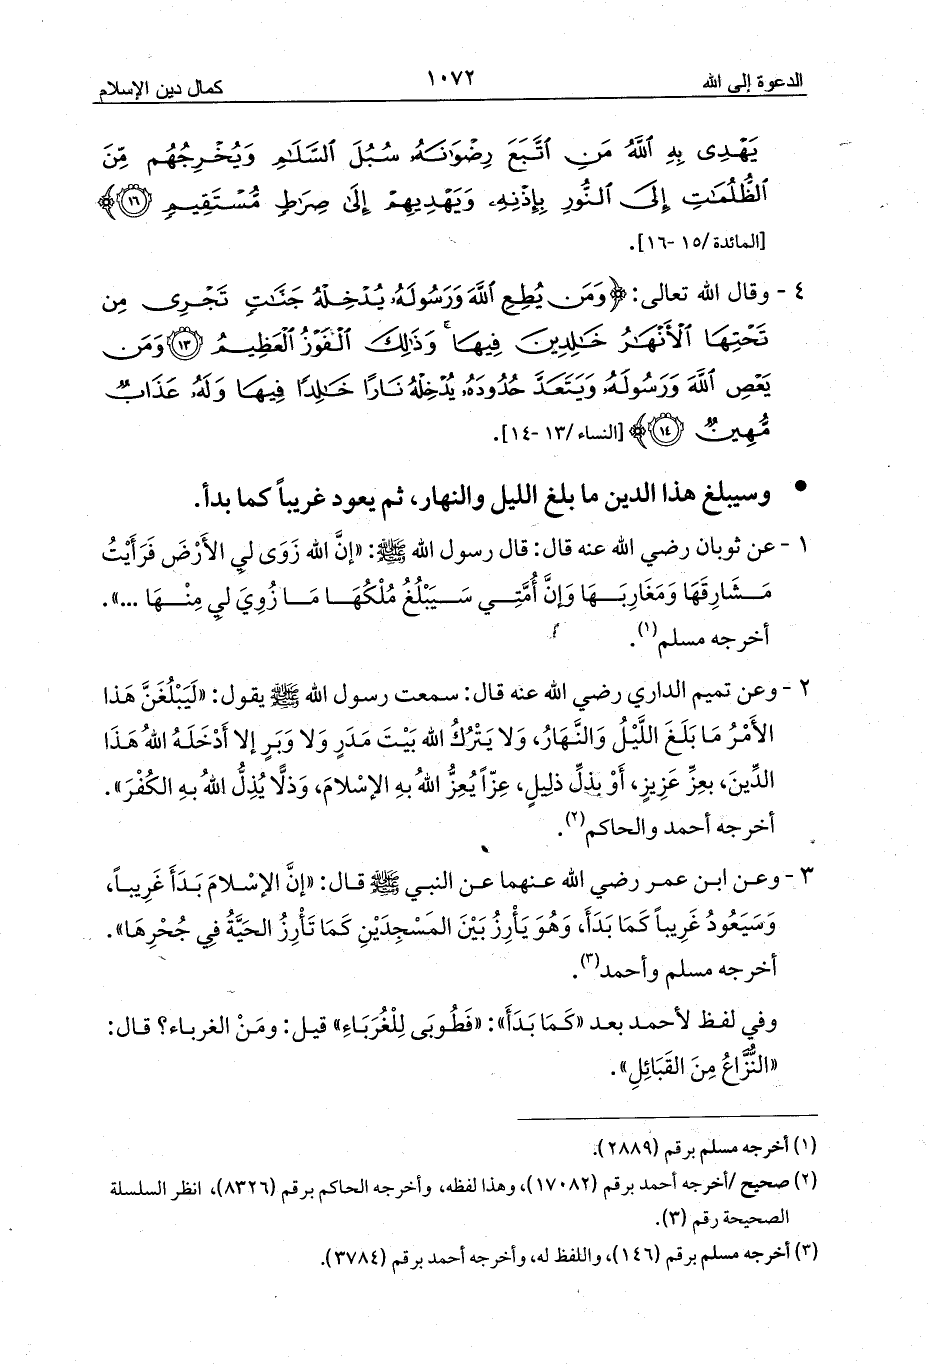 الدعوة إلى الله ١٠٧٢ كمال دين الإسلام
يَهْدِى بِهِ ٱللَّهُ مَنِ ٱتَّبَعَ رِضْوَٰنَهُۥ سُبُلَ ٱلسَّلَٰمِ وَيُخْرِجُهُم مِّنَ
ٱلظُّلُمَٰتِ إِلَى ٱلنُّورِ بِإِذْنِهِۦ وَيَهْدِيهِمْ إِلَىٰ صِرَٰطٍ مُّسْتَقِيمٍ ١٦﴾
[المائدة/١٥-١٦].
٤ - وقال الله تعالى: ﴿وَمَن يُطِعِ ٱللَّهَ وَرَسُولَهُۥ يُدْخِلْهُ جَنَّٰتٍ تَجْرِى مِن
تَحْتِهَا ٱلْأَنْهَٰرُ خَٰلِدِينَ فِيهَا ۚ وَذَٰلِكَ ٱلْفَوْزُ ٱلْعَظِيمُ ١٣ وَمَن
يَعْصِ ٱللَّهَ وَرَسُولَهُۥ وَيَتَعَدَّ حُدُودَهُۥ يُدْخِلْهُ نَارًا خَٰلِدًا فِيهَا وَلَهُۥ عَذَابٌ
مُّهِينٌ ١٤﴾ [النساء/١٣-١٤].
• وسيبلغ هذا الدين ما بلغ الليل والنهار، ثم يعود غريباً كما بدأ.
١ - عن ثوبان رضي الله عنه قال: قال رسول الله ﷺ: «إنَّ الله زَوَى لي الأَرْضَ فَرَأَيْتُ
مَشَارِقَهَا وَمَغَارِبَهَا وَإنَّ أُمَّتِي سَيَبْلُغُ مُلْكُهَا مَا زُوِيَ لي مِنْهَا ...».
أخرجه مسلم(١).
٢ - وعن تميم الداري رضي الله عنه قال: سمعت رسول الله ﷺ يقول: «لَيَبْلُغَنَّ هَذا
الأمْرُ مَا بَلَغَ اللَّيْلُ وَالنَّهَارُ، وَلا يَتْرُكُ الله بَيْتَ مَدَرٍ وَلا وَبَرٍ إلا أدْخَلَهُ اللهُ هَذَا
الدِّينَ، بِعِزِّ عَزِيزٍ، أَوْ بِذِلِّ ذلِيلٍ، عِزّاً يُعِزُّ اللهُ بِهِ الإسْلامَ، وَذلّا يُذِلُّ اللهُ بهِ الكُفْرَ».
أخرجه أحمد والحاكم(٢).
٣ - وعن ابن عمر رضي الله عنهما عن النبي ﷺ قال: «إنَّ الإسْلامَ بَدَأَ غَرِيباً،
وَسَيَعُودُ غَرِيباً كَمَا بَدَأَ، وَهُوَ يَأْرِزُ بَيْنَ المَسْجِدَيْنِ كَمَا تَأْرِزُ الحَيَّةُ فِي جُحْرِهَا».
أخرجه مسلم وأحمد(٣).
وفي لفظ لأحمد بعد «كَمَا بَدَأَ»: «فَطُوبَى لِلْغُرَبَاءِ» قيل: ومَنْ الغرباء؟ قال:
«النُّزَّاعُ مِنَ القَبَائِلِ».
(١) أخرجه مسلم برقم (٢٨٨٩).
(٢) صحيح/أخرجه أحمد برقم (١٧٠٨٢)، وهذا لفظه، وأخرجه الحاكم برقم (٨٣٢٦)، انظر السلسلة
الصحيحة رقم (٣).
(٣) أخرجه مسلم برقم (١٤٦)، واللفظ له، وأخرجه أحمد برقم (٣٧٨٤).